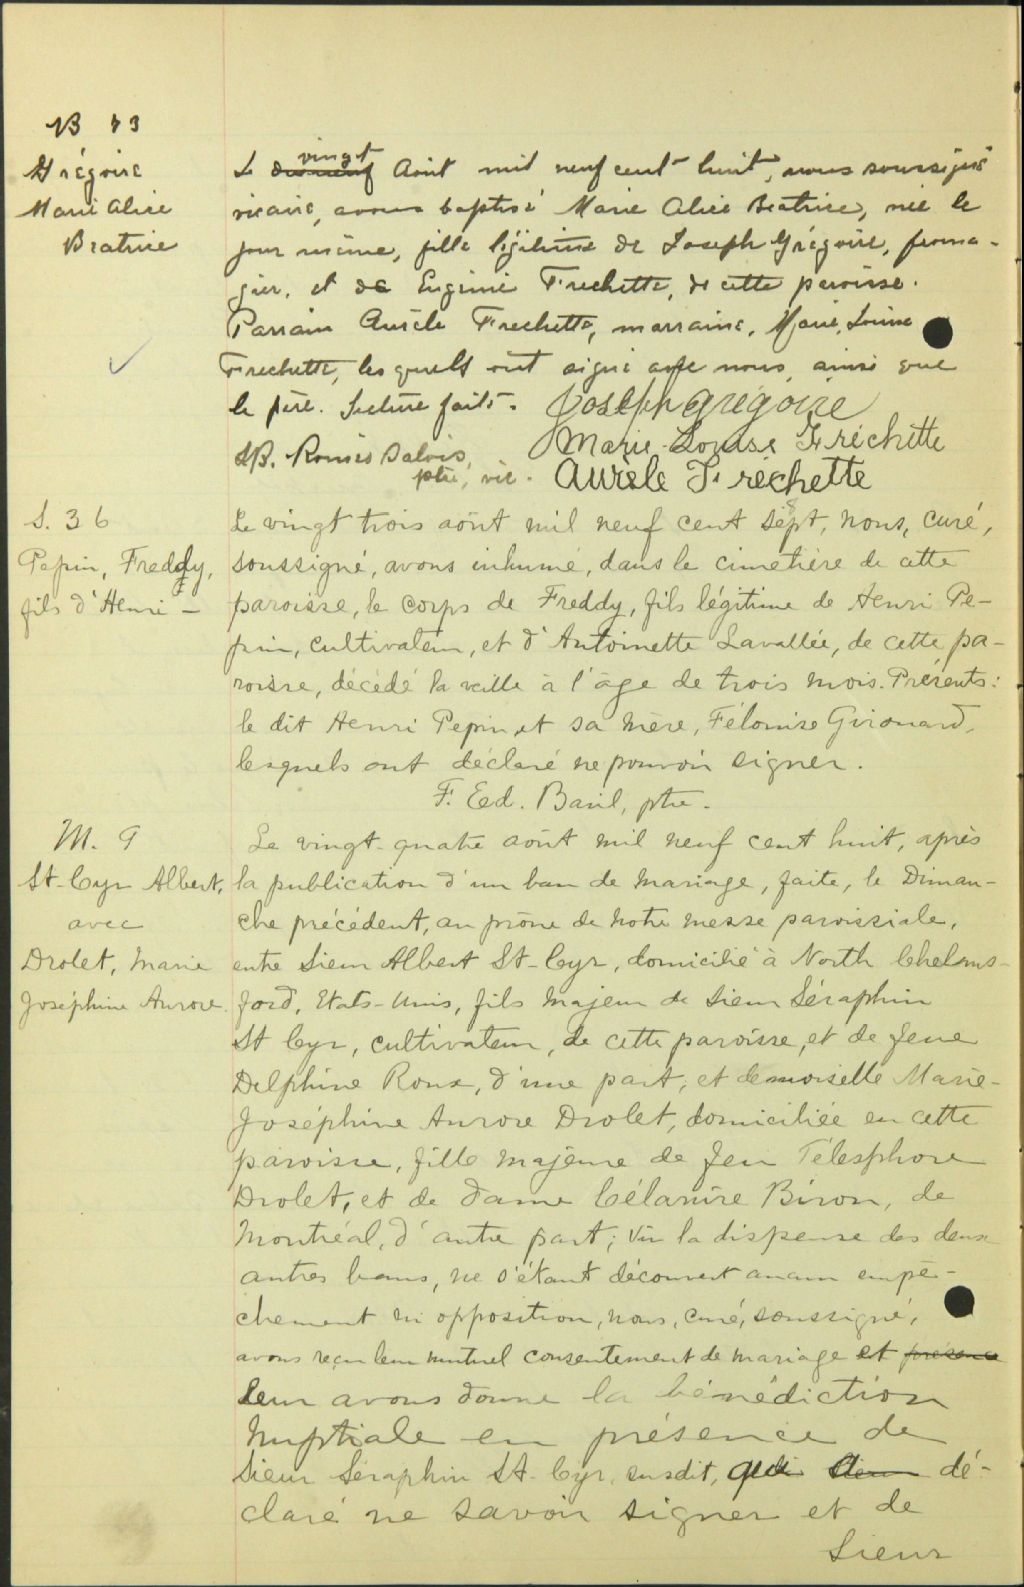 B 73
Grégoire
Marie Alice
Béatrice
Le dixneuf vingt Août mil neuf cent huit, nous soussigné
vicaire, avons baptisé Marie Alice Béatrice, née le
jour même, fille légitime de Joseph Grégoire, froma-
gier, et de Eugénie Frechette, de cette paroisse.
Parrain Aurèle Frechette, marraine, Marie Louise
Frechette, lesquels ont signé avec nous, ainsi que
le père. Lecture faite. Joseph Grégoire
Marie-Louise Fréchette
JB. Roméo Dalois,
ptre, vic. Aurèle Fréchette
S. 36
Pepin, Freddy,
fils d'Henri -
Le vingt trois août mil neuf cent sept, nous, curé,
soussigné, avons inhumé, dans le cimetière de cette
paroisse, le corps de Freddy, fils légitime de Henri Pe-
pin, cultivateur, et d'Antoinette Lavallée, de cette pa-
roisse, décédé la veille à l'âge de trois mois. Présents:
le dit Henri Pepin et sa mère, Félonise Girouard,
lesquels ont déclaré ne pouvoir signer.
F. Ed. Baril, ptre.
M. 9
St-Cyr Albert,
avec
Drolet, Marie
Joséphine Aurore
Le vingt-quatre août mil neuf cent huit, après
la publication d'un ban de mariage, faite, le Diman-
che précédent, au prône de notre messe paroissiale,
entre Sieur Albert St-Cyr, domicilié à North Chelms-
ford, Etats-Unis, fils majeur de Sieur Séraphin
St Cyr, cultivateur, de cette paroisse, et de feue
Delphine Roux, d'une part, et demoiselle Marie-
Joséphine Aurore Drolet, domiciliée en cette
paroisse, fille majeure de feu Télesphore
Drolet, et de dame Célanire Biron, de
Montréal, d'autre part; Vu la dispense des deux
autres bans, ne s'étant découvert aucun empê-
chement ni opposition, nous, curé, soussigné,
avons reçu leur mutuel consentement de mariage et présence
leur avons donné la bénédiction
nuptiale en présence de
Sieur Séraphin St-Cyr, susdit, qui dé-
claré ne savoir signer et de
Sieur